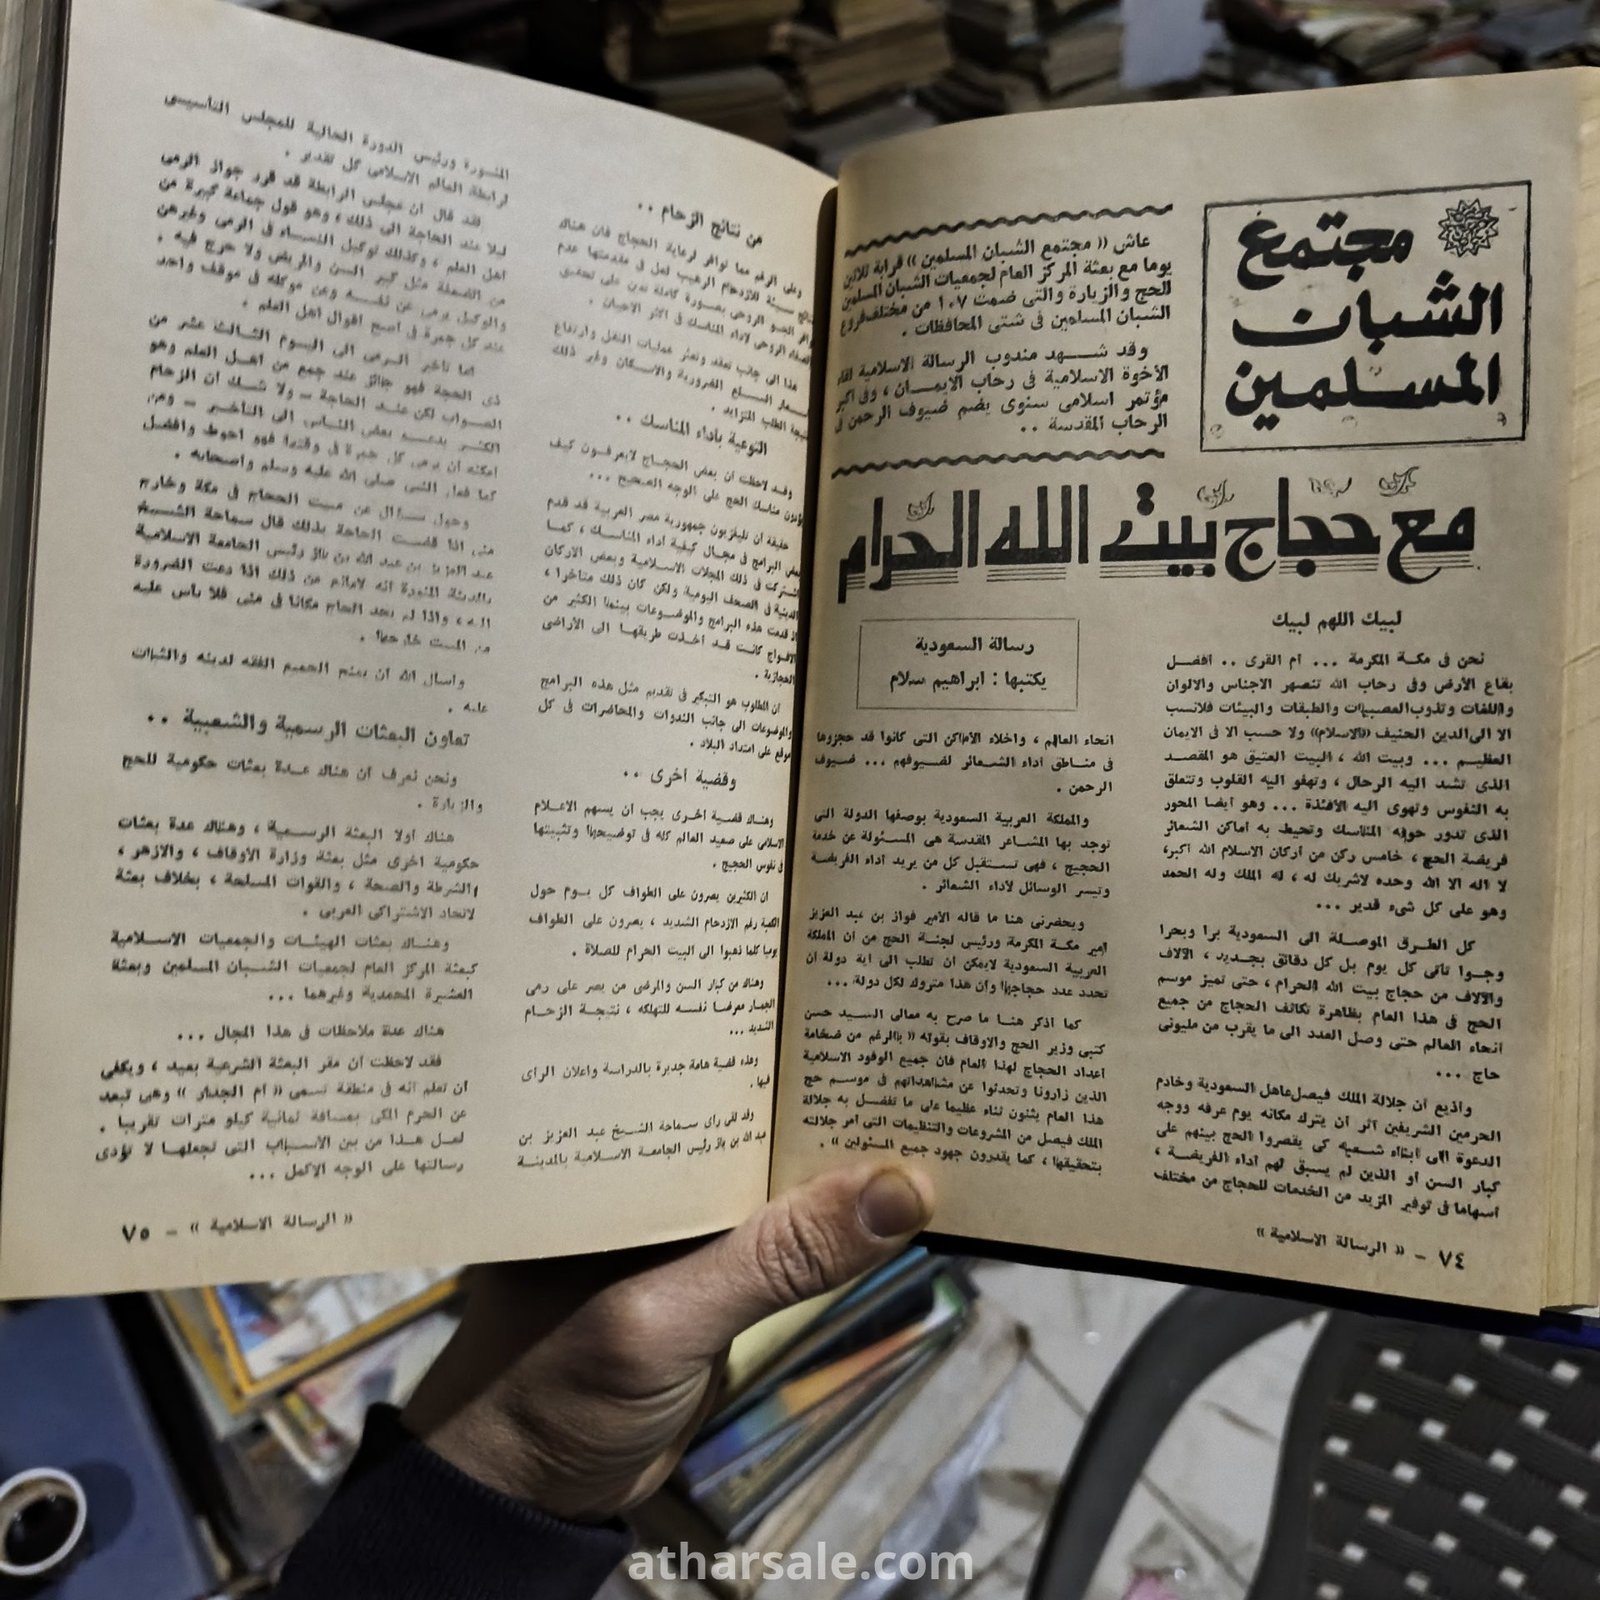 مجتمع
الشبان
المسلمين
عاش « مجتمع الشبان المسلمين » قرابة ثلاثين
يوما مع بعثة المركز العام لجمعيات الشبان المسلمين
للحج والزيارة والتى ضمت ١٠٧ من مختلف فروع
الشبان المسلمين فى شتى المحافظات .
وقد شهد مندوب الرسالة الاسلامية لقاء
الأخوة الاسلامية فى رحاب الايمان ، وفى أكبر
مؤتمر اسلامى سنوى يضم ضيوف الرحمن فى
الرحاب المقدسة ..
مع حجاج بيت الله الحرام
لبيك اللهم لبيك
نحن فى مكة المكرمة ... أم القرى .. أفضل
بقاع الأرض وفى رحاب الله تنصهر الاجناس والالوان
واللغات وتذوب العصبيات والطبقات والبيئات فلا نسب
الا الى الدين الحنيف «الاسلام» ولا حسب الا فى الايمان
العظيم ... وبيت الله ، البيت العتيق هو المقصد
الذى تشد اليه الرحال ، وتهفو اليه القلوب وتتعلق
به النفوس وتهوى اليه الأفئدة ... وهو أيضا المحور
الذى تدور حوله المناسك وتحيط به أماكن الشعائر
فريضة الحج ، خامس ركن من أركان الاسلام الله أكبر،
لا اله الا الله وحده لاشريك له ، له الملك وله الحمد
وهو على كل شىء قدير ...
كل الطرق الموصلة الى السعودية برا وبحرا
وجوا تأتى كل يوم بل كل دقائق بجديد ، الآلاف
والآلاف من حجاج بيت الله الحرام ، حتى تميز موسم
الحج فى هذا العام بظاهرة تكاثف الحجاج من جميع
أنحاء العالم حتى وصل العدد الى ما يقرب من مليونى
حاج ...
وأذيع أن جلالة الملك فيصل عاهل السعودية وخادم
الحرمين الشريفين آثر أن يترك مكانه يوم عرفه ووجه
الدعوة الى أبناء شعبه كى يقصروا الحج بينهم على
كبار السن أو الذين لم يسبق لهم أداء الفريضة ،
اسهاما فى توفير المزيد من الخدمات للحجاج من مختلف
رسالة السعودية
يكتبها : ابراهيم سلام
أنحاء العالم ، واخلاء الأماكن التى كانوا قد حجزوها
فى مناطق أداء الشعائر لضيوفهم ... ضيوف
الرحمن .
والمملكة العربية السعودية بوصفها الدولة التى
توجد بها المشاعر المقدسة هى المسئولة عن خدمة
الحجيج ، فهى تستقبل كل من يريد أداء الفريضة
وتيسر الوسائل لأداء الشعائر .
ويحضرنى هنا ما قاله الأمير فواز بن عبد العزيز
أمير مكة المكرمة ورئيس لجنة الحج من أن المملكة
العربية السعودية لايمكن أن تطلب الى أية دولة أن
تحدد عدد حجاجها وأن هذا متروك لكل دولة ...
كما أذكر هنا ما صرح به معالى السيد حسن
كتبى وزير الحج والأوقاف بقوله « بالرغم من ضخامة
أعداد الحجاج لهذا العام فان جميع الوفود الاسلامية
الذين زارونا وتحدثوا عن مشاهداتهم فى موسم حج
هذا العام يثنون ثناء عظيما على ما تفضل به جلالة
الملك فيصل من المشروعات والتنظيمات التى أمر جلالته
بتحقيقها ، كما يقدرون جهود جميع المسئولين » .
٧٤ – « الرسالة الاسلامية »
من نتائج الزحام ..
وعلى الرغم مما توافر لرعاية الحجاج فان هناك
نتائج سيئة للازدحام الرهيب لعل فى مقدمتها عدم
الجو الروحى بصورة كاملة تعين على تحقيق
الصفاء الروحى لأداء المناسك فى أكثر الأحيان .
هذا الى جانب تعقد وتعثر عمليات النقل وارتفاع
أسعار السلع الضرورية والاسكان وغير ذلك
نتيجة الطلب المتزايد .
التوعية بأداء المناسك ..
وقد لاحظت أن بعض الحجاج لايعرفون كيف
يؤدون مناسك الحج على الوجه الصحيح ...
حقيقة أن تليفزيون جمهورية مصر العربية قد قدم
بعض البرامج فى مجال كيفية أداء المناسك ، كما
اشتركت فى ذلك المجلات الاسلامية وبعض الأركان
الدينية فى الصحف اليومية ولكن كان ذلك متأخرا ،
اذ قدمت هذه البرامج والموضوعات بينما الكثير من
الأفواج كانت قد أخذت طريقها الى الأراضى
الحجازية .
ان المطلوب هو التبكير فى تقديم مثل هذه البرامج
والموضوعات الى جانب الندوات والمحاضرات فى كل
موقع على امتداد البلاد .
وقضية أخرى ..
وهناك قضية أخرى يجب أن يسهم الاعلام
الاسلامى على صعيد العالم كله فى توضيحها وتثبيتها
فى نفوس الحجيج .
ان الكثيرين يصرون على الطواف كل يوم حول
الكعبة رغم الازدحام الشديد ، يصرون على الطواف
يوميا كلما ذهبوا الى البيت الحرام للصلاة .
وهناك من كبار السن والمرضى من يصر على رمى
الجمار معرضا نفسه للتهلكة ، نتيجة الزحام
الشديد ...
وهذه قضية هامة جديرة بالدراسة واعلان الرأى
فيها .
وقد لقى رأى سماحة الشيخ عبد العزيز بن
عبد الله بن باز رئيس الجامعة الاسلامية بالمدينة
المنورة ورئيس الدورة الحالية للمجلس التأسيسى
لرابطة العالم الاسلامى كل تقدير .
فقد قال ان مجلس الرابطة قد قرر جواز الرمى
ليلا عند الحاجة الى ذلك ، وهو قول جماعة كبيرة من
أهل العلم ، وكذلك توكيل النساء فى الرمى وغيرهن
من الضعفة مثل كبير السن والمريض ولا حرج فيه .
والوكيل يرمى عن نفسه وعن موكله فى موقف واحد
عند كل جمرة فى أصح أقوال أهل العلم .
أما تأخير الرمى الى اليوم الثالث عشر من
ذى الحجة فهو جائز عند جمع من أهل العلم وهو
الصواب لكن عند الحاجة – ولا شك ان الزحام
الكثير يدعو بعض الناس الى التأخير – ومن
أمكنه أن يرمى كل جمرة فى وقتها فهو أحوط وأفضل
كما فعل النبى صلى الله عليه وسلم وأصحابه .
وحول سؤال عن مبيت الحجاج فى مكة وخارج
منى اذا قضت الحاجة بذلك قال سماحة الشيخ
عبد العزيز بن عبد الله بن باز رئيس الجامعة الاسلامية
بالمدينة المنورة انه لامانع من ذلك اذا دعت الضرورة
اليه ، واذا لم يجد الحاج مكانا فى منى فلا بأس عليه
من المبيت خارجها .
وأسأل الله أن يمنح الجميع الفقه لدينه والثبات
عليه .
تعاون البعثات الرسمية والشعبية ..
ونحن نعرف أن هناك عدة بعثات حكومية للحج
والزيارة .
هناك أولا البعثة الرسمية ، وهناك عدة بعثات
حكومية أخرى مثل بعثة وزارة الأوقاف ، والأزهر ،
الشرطة والصحة ، والقوات المسلحة ، بخلاف بعثة
لاتحاد الاشتراكى العربى .
وهناك بعثات الهيئات والجمعيات الاسلامية
كبعثة المركز العام لجمعيات الشبان المسلمين وبعثة
العشيرة المحمدية وغيرهما ...
هناك عدة ملاحظات فى هذا المجال ...
فقد لاحظت أن مقر البعثة الشرعية بعيد ، ويكفى
أن تعلم أنه فى منطقة تسمى « أم الجدار » وهى تبعد
عن الحرم المكى بمسافة ثمانية كيلو مترات تقريبا .
لعل هذا من بين الأسباب التى تجعلها لا تؤدى
رسالتها على الوجه الأكمل ...
« الرسالة الاسلامية » – ٧٥
atharsale.com